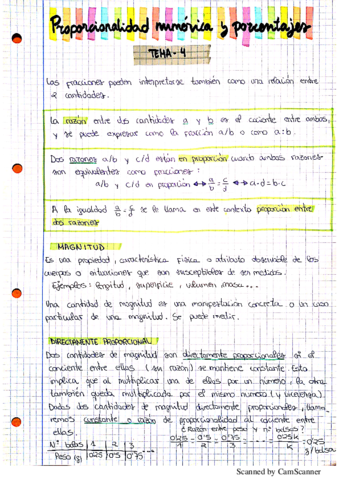 Proporcionalidad numérica y porcentajes
TEMA - 4
Las fracciones pueden interpretarse también como una relación entre
2 cantidades.
La razón entre dos cantidades a y b es el cociente entre ambos,
y se puede expresar como la fracción a/b o como a:b.
Dos razones a/b y c/d están en proporción cuando ambas razones
son equivalentes como fracciones:
a/b y c/d en proporción ↔ a/b = c/d ↔ a·d = b·c
A la igualdad a/b = c/d se le llama en este contexto proporción entre
dos razones.
MAGNITUD
Es una propiedad, característica física o atributo observable de los
cuerpos o situaciones que son susceptibles de ser medidos.
Ejemplos: longitud, superficie, volumen, masa...
Una cantidad de magnitud es una manifestación concreta o un caso
particular de una magnitud. Se puede medir.
DIRECTAMENTE PROPORCIONAL
Dos cantidades de magnitud son directamente proporcionales si el
cociente entre ellas (su razón) se mantiene constante. Esto
implica que al multiplicar una de ellas por un número, la otra
también queda multiplicada por el mismo número (y viceversa).
Dadas dos cantidades de magnitud directamente proporcionales, llama-
remos constante o razón de proporcionalidad al cociente entre
ellas.
¿Razón entre peso y nº bolsas?
Nº bolsas | 1 | 2 | 3
Peso (g) | 0'25 | 0'5 | 0'75
0'25/1 = 0'5/2 = 0'75/3 = ... = 0'25k/k = 0'25
g/bolsa
Scanned by CamScanner